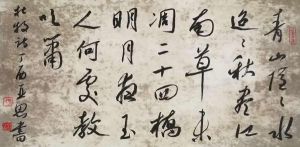 青山隐〻水
迢〻秋尽江
南草未
凋二十四桥
明月夜玉
人何处教
吹箫
杜牧诗丁酉亚思书